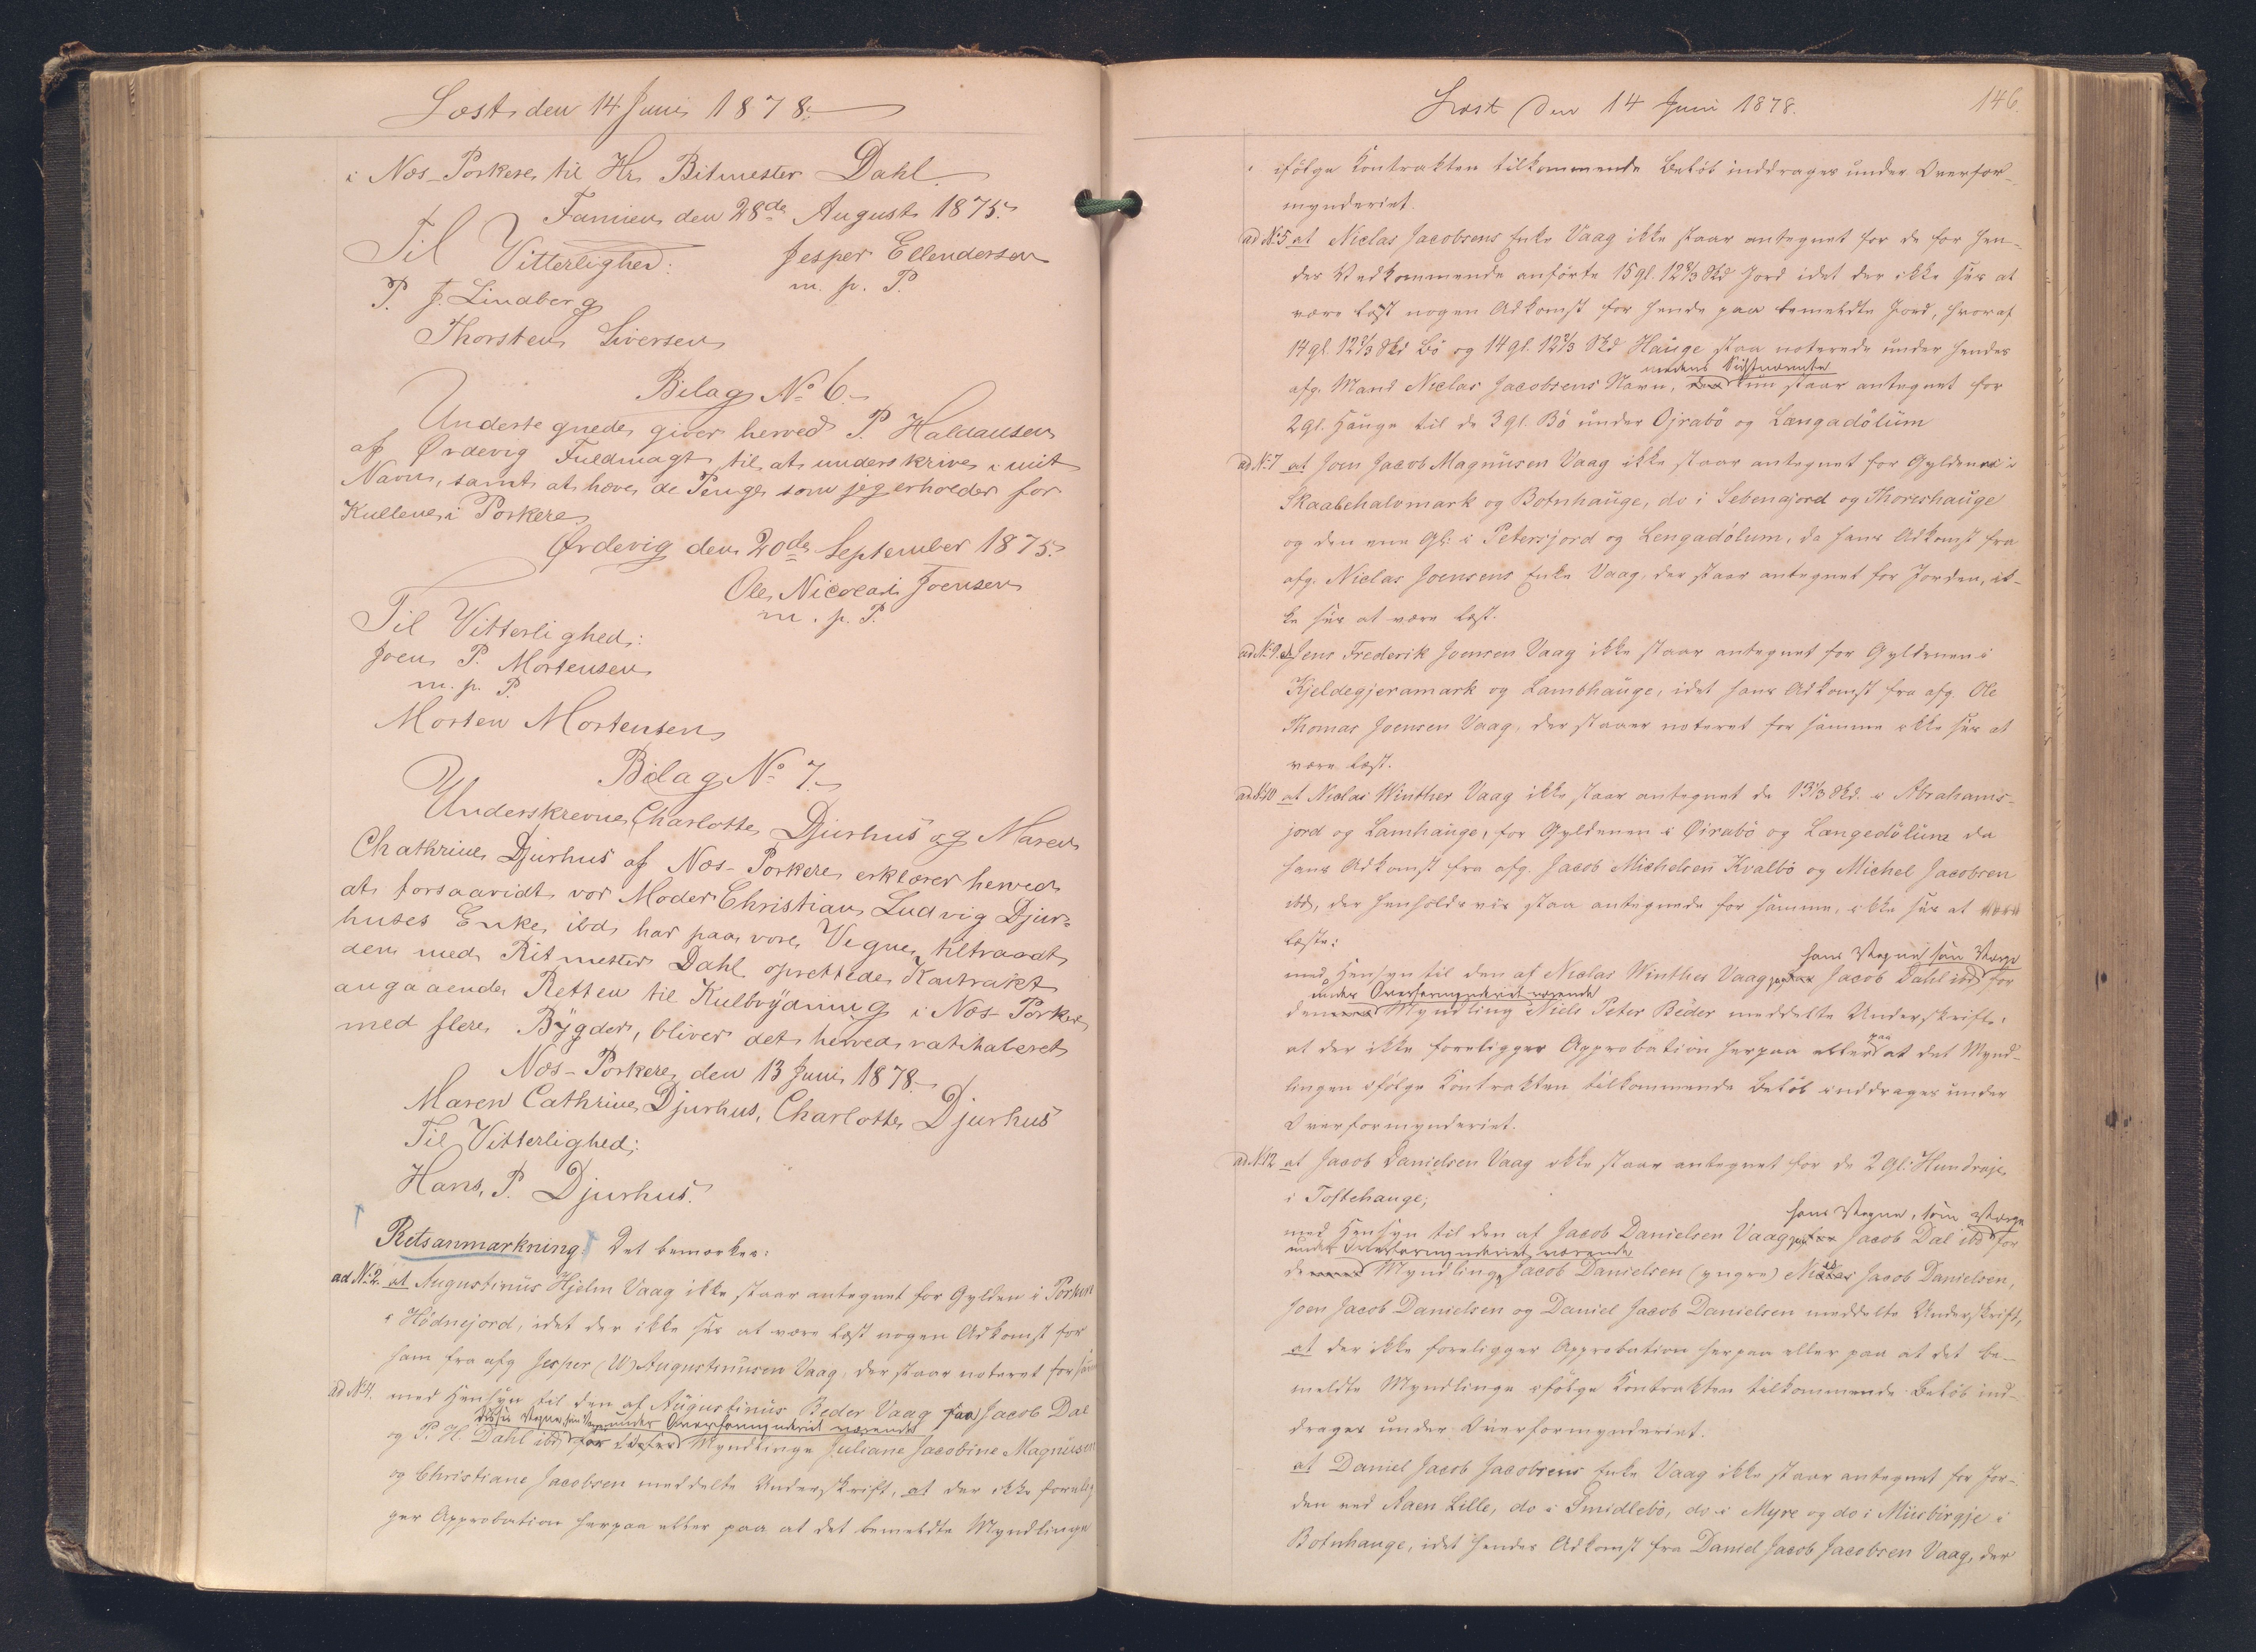 Læst den 14 Juni 1878.
i Nos-Porkere til Hr. Ritmester Dahl.
Famien den 28de August 1875.
Til Vitterlighed:
Jesper Ellendersen
m. p. P.
P. J. Lindberg
Thorsten Siversen
Bilag No 6.
Undertegnede giver herved P. Haldansen
af Ørdevig Fuldmagt til at underskrive i mit
Navn, samt at hæve de Penge som jeg erholder for
Kullene i Porkere
Ørdevig den 20de September 1875.
Ole Nicolai Joensen
m. p. P.
Til Vitterlighed:
Joen P. Mortensen
m. p. P.
Morten Mortensen
Bilag No 7.
Underskrevne Charlotte Djurhus og Maren
Chathrine Djurhus af Nos-Porkere erklærer herved
at forsaavidt vor Moder Christian Ludvig Djur-
huses Enke ibd. har paa vore Vegne tiltraadt
den med Ritmester Dahl oprettede Kontrakt
angaaende Retten til Kulbrydning i Nos-Porkere
med flere Bygder, bliver det herved ratihaberet
Nos-Porkere den 13 Juni 1878.
Maren Cathrine Djurhus, Charlotte Djurhus
Til Vitterlighed:
Hans. P. Djurhus.
Retsanmærkning: Det bemærkes:
ad No 2. at Augustinus Hjelm Vaag ikke staar antegnet for Gylden i Porkere
i Hödnejord, idet der ikke ses at være læst nogen Adkomst for
ham fra afg Jesper (W) Augustinusen Vaag, der staar noteret for samme
ad No 4. med Hensyn til den af Augustinus Beder Vaag paa Jacob Dal
under Overformynderiet værende
og P. H. Dahl ibd for Myndlinge Juliane Jacobine Magnusen
og Christiane Jacobsen meddelte Underskrift, at der ikke forelig-
ger Approbation herpaa eller paa at det bemeldte Myndlinge
Læst den 14 Juni 1878.
146.
ifölge Kontrakten tilkommende Belöb inddrages under Overfor-
mynderiet.
ad No 5 at Niclas Jacobsens Enke Vaag ikke staar antegnet for de for hen-
des Vedkommende anförte 15 gl. 12 2/3 Skd Jord idet der ikke ses at
være læst nogen Adkomst for hende paa bemeldte Jord, hvoraf
14 gl. 12 2/3 Skd Bö og 14 gl. 12 2/3 Skd Hauge staa noterede under hendes
medens Sidstnævnte
afg. Mand Niclas Jacobsens Navn, kun staar antegnet for
2 gl. Hauge til de 3 gl. Bö under Ojrabö og Længadölum
ad No 7 at Joen Jacob Magnusen Vaag ikke staar antegnet for Gyldenen i
Skaalehalvmark og Botnhauge, do i Sebenajord og Thoreshauge
og den ene Gl: i Petersjord og Lengadölum, da hans Adkomst fra
afg. Niclas Joensens Enke Vaag, der staar antegnet for Jorden, ik-
ke ses at være læst.
ad No 9. at Jens Frederik Joensen Vaag ikke staar antegnet for Gyldenen i
Kjeldegjeramark og Lambhauge, idet hans Adkomst fra afg. Ole
Thomas Joensen Vaag, der staaer noteret for samme ikke ses at
være læst.
ad No 10 at Niclas Winther Vaag ikke staar antegnet de 13 1/3 Skd. i Abrahams-
jord og Lamhauge, for Gyldenen i Oirabö og Længedölum da
hans Adkomst fra afg. Jacob Michelsen Kvalbö og Michel Jacobsen
ibd, der henholdsvis staa antegnede for samme, ikke ses at være
læste;
hans Vegne som Værge
med Hensyn til den af Niclas Winther Vaag paa Jacob Dahl ibd for
under Overformynderiet værende
den Myndling Niels Peter Beder meddelte Underskrift,
paa
at der ikke foreligger Approbation herpaa eller at det Mynd-
lingen ifölge Kontrakten tilkommende Belöb inddrages under
Overformynderiet.
ad No 12 at Jacob Danielsen Vaag ikke staar antegnet for de 2 Gl: Hundreje
i Toftehauge;
hans Vegne, som Værge
med Hensyn til den af Jacob Danielsen Vaag paa Jacob Dal ibd for
under Overformynderiet værende
de Myndlinge Jacob Danielsen (yngre) Jacob Danielsen,
Joen Jacob Danielsen og Daniel Jacob Danielsen meddelte Underskrift,
at der ikke foreligger Approbation herpaa eller paa at det be-
meldte Myndlinge ifölge Kontrakten tilkommende Belöb ind-
drages under Overformynderiet.
at Daniel Jacob Jacobsens Enke Vaag ikke staar antegnet for Jor-
den ved Aaen Lille, do i Smidlebö, do i Myre og do i Miisbirgje i
Botnhauge, idet hendes Adkomst fra Daniel Jacob Jacobsen Vaag, der